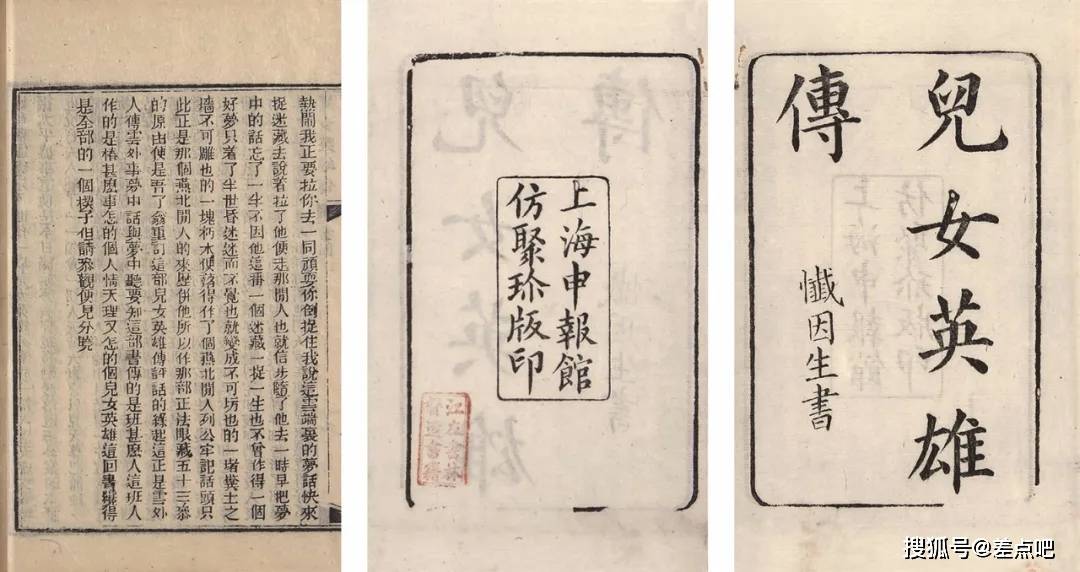 兒女英雄
傳
懺因生書
上海申報館
仿聚珍版印
江左書林
督造書籍
熱鬧我正要拉你去一同頑耍你倒捉住我說這雲端裏的夢話快來
捉迷藏去說著拉了他便走那閒人也就信步隨了他去一時早把夢
中的話忘了一半不因他這番一個迷藏一捉一生也不曾作得一個
好夢只着了半世昏迷迷而不覺也就變成不可圬也的一堵糞土之
墻不可雕也的一塊朽木便落得作了個燕北閒人列公牢記話頭只
此正是那個燕北閒人的來歷併他所以作那部正法眼藏五十三參
的原由便是吾了翁重訂這部兒女英雄傳評話的緣起這正是雲外
人傳雲外事夢中話與夢中聽要知這部書傳的是班甚麼人這班人
作的是樁甚麼事怎的個人情天理又怎的個兒女英雄這回書纔得
是全部的一個楔子但請參觀便見分曉
搜狐号@差点吧